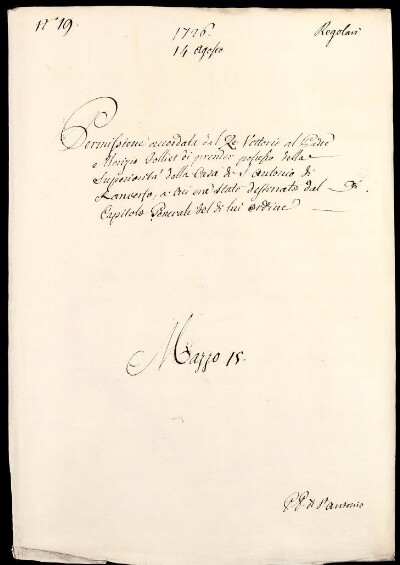 N.° 19.
1726.
Regolari
14 Agosto
Permissione accordata dal Re Vittorio al Padre
e Morizio Tolliet di prender possesso della
Superiorità della Casa di S. Antonio di
Ranverso, a cui era stato destinato dal
Capitolo Generale del di lui ordine
Mazzo 15.
PP. di S. Antonio